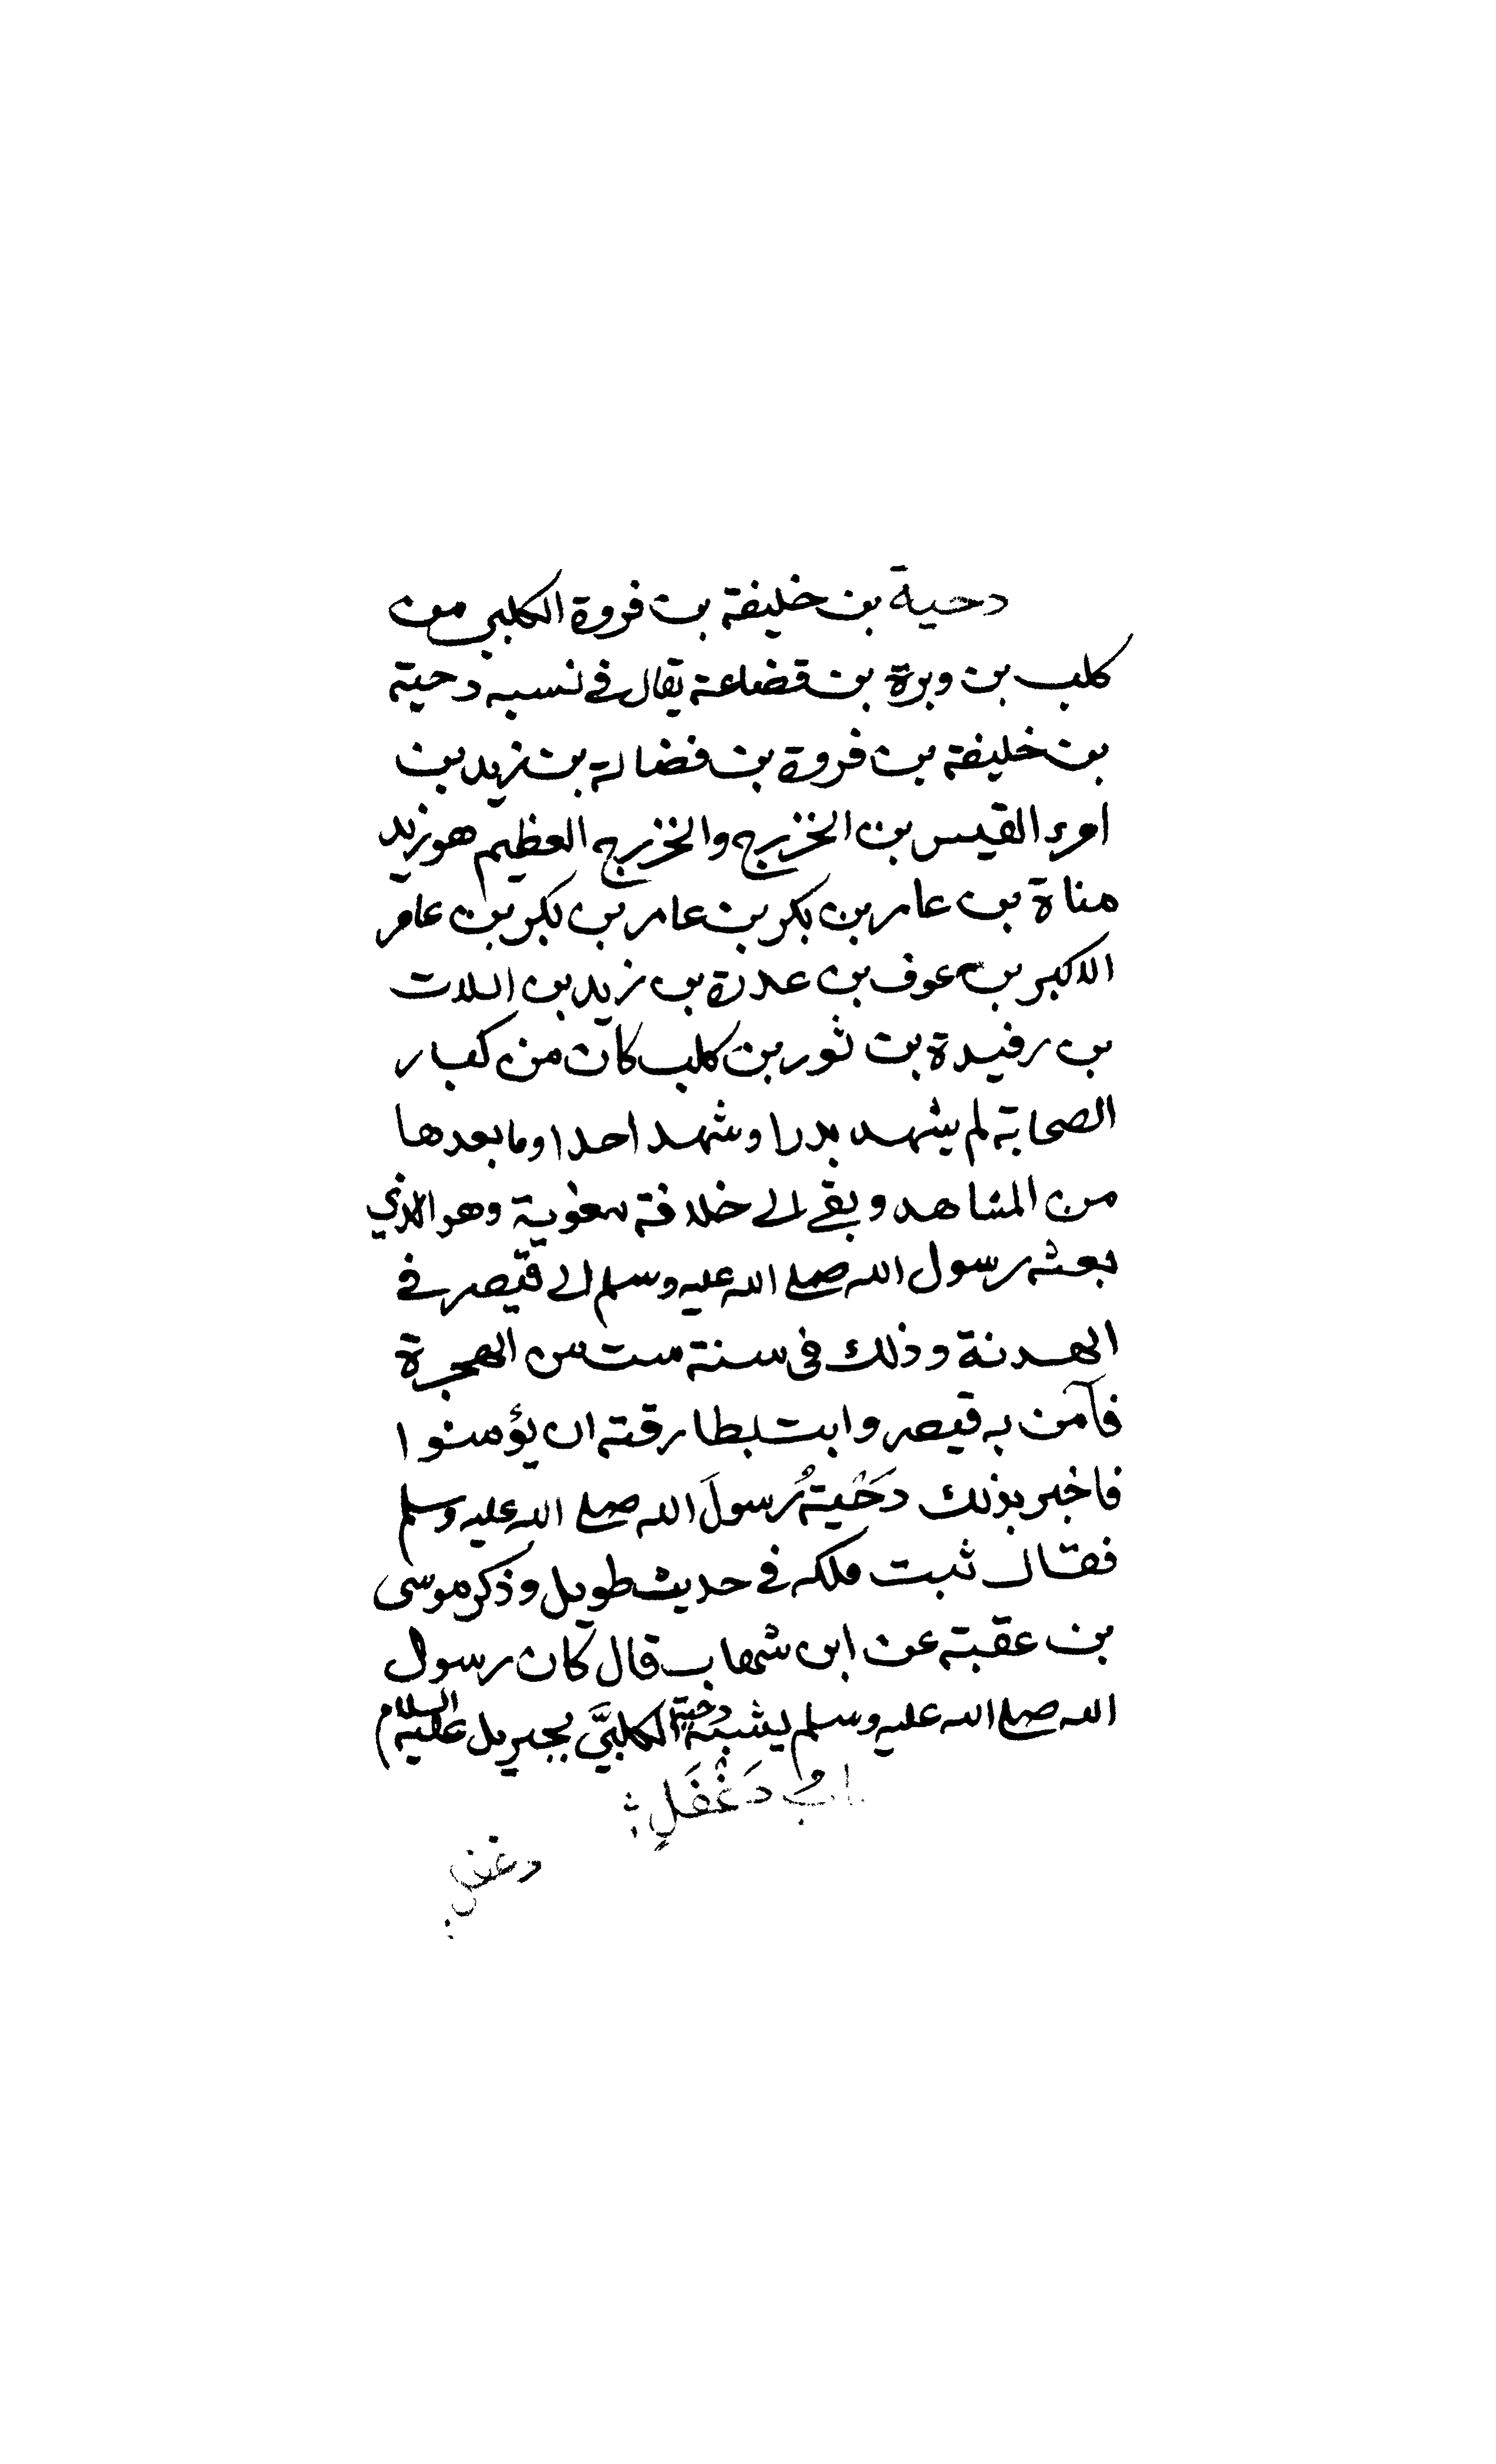 دحية بن خليفة بن فروة الكلبي من
كلب بن وبرة بن قضاعة يقال في نسبه دحية
بن خليفة بن فروة بن فضالة بن زيد بن
امرء القيس بن الخزرج والخزرج العظيم هو زيد
مناة بن عامر بن بكر بن عامر بن بكر بن عامر
الاكبر بن عوف بن عذرة بن زيد بن اللات
بن رفيدة بن ثور بن كلب كان من كبار
الصحابة لم يشهد بدرا وشهد احدا وما بعدها
من المشاهد وبقي الى خلافة معوية وهو الذي
بعثه رسول الله صلى الله عليه وسلم الى قيصر في
الهدنة وذلك في سنة ست من الهجرة
فآمن به قيصر وابت بطارقته ان يؤمنوا
فاخبر بذلك دَحْيَةُ رسولَ الله صلى الله عليه وسلم
فقال ثبت ملكه في حديث طويل وذكر موسى
بن عقبة عن ابن شهاب قال كان رسول
الله صلى الله عليه وسلم يشبّه دحية الكلبيَّ بجبريل عليه السلام
بابُ دَغْفَلٍ
دغفل